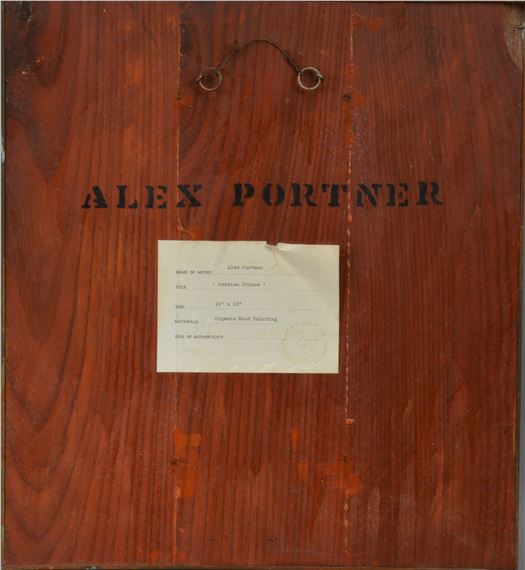 ALEX PORTNER
NAME OF ARTIST: Alex Portner
TITLE: ' Persian Prince '
SIZE: 15" x 18"
MATERIALS: Organic Wood Painting
SEAL OF AUTHENTICITY: